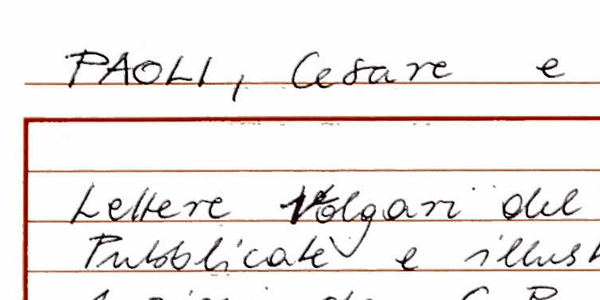 PAOLI, Cesare e
Lettere Volgari del
Pubblicate e illust
da C. P.